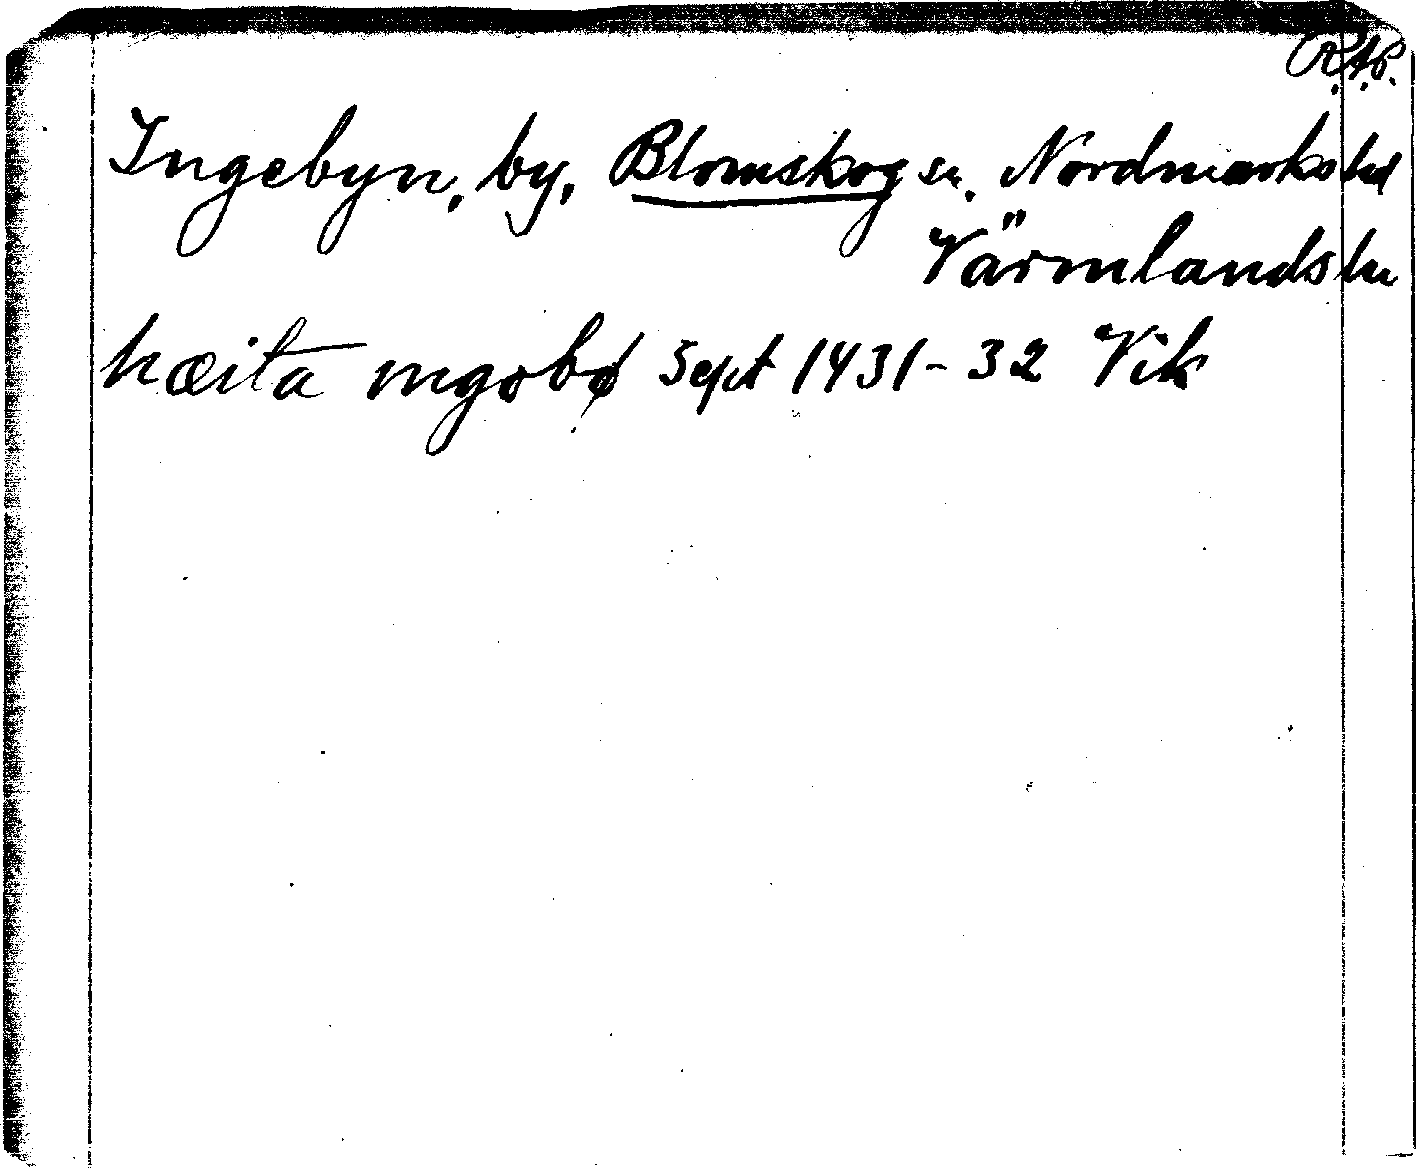 R.A.P.
Ingebyn, by, Blomskog sn. Nordmarks hd
Värmlands län
hæita ingobø Sept 1431-32 Vik